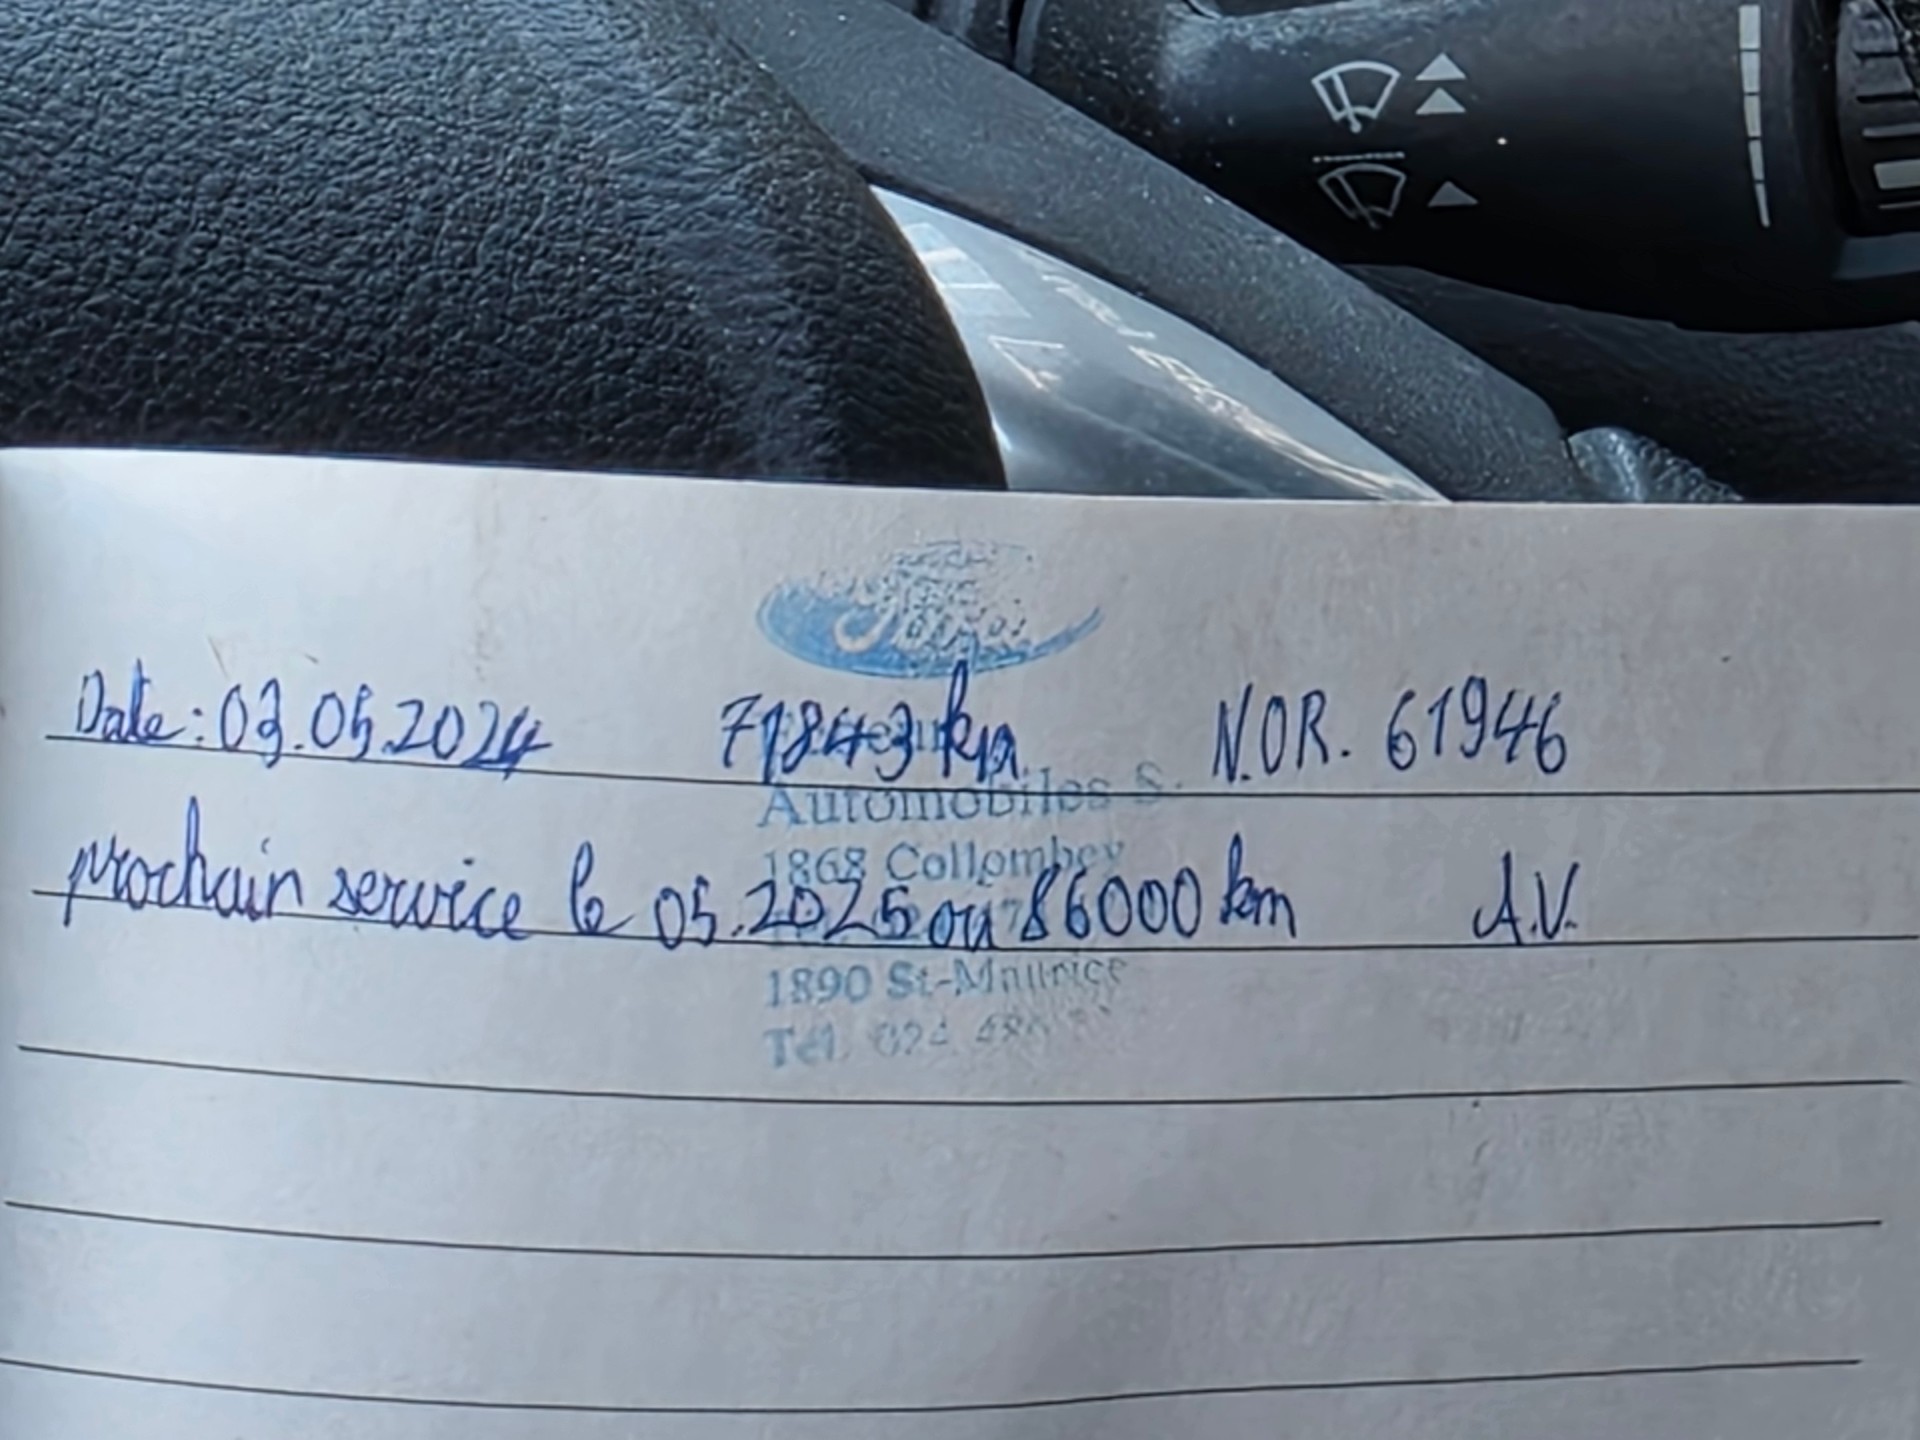 Date: 03.05.2024 71843 km N.OR. 61946
Automobiles S.
1868 Collombey
prochain service le 05.2025 ou 86000 km A.V.
1890 St-Maurice
Tél. 024